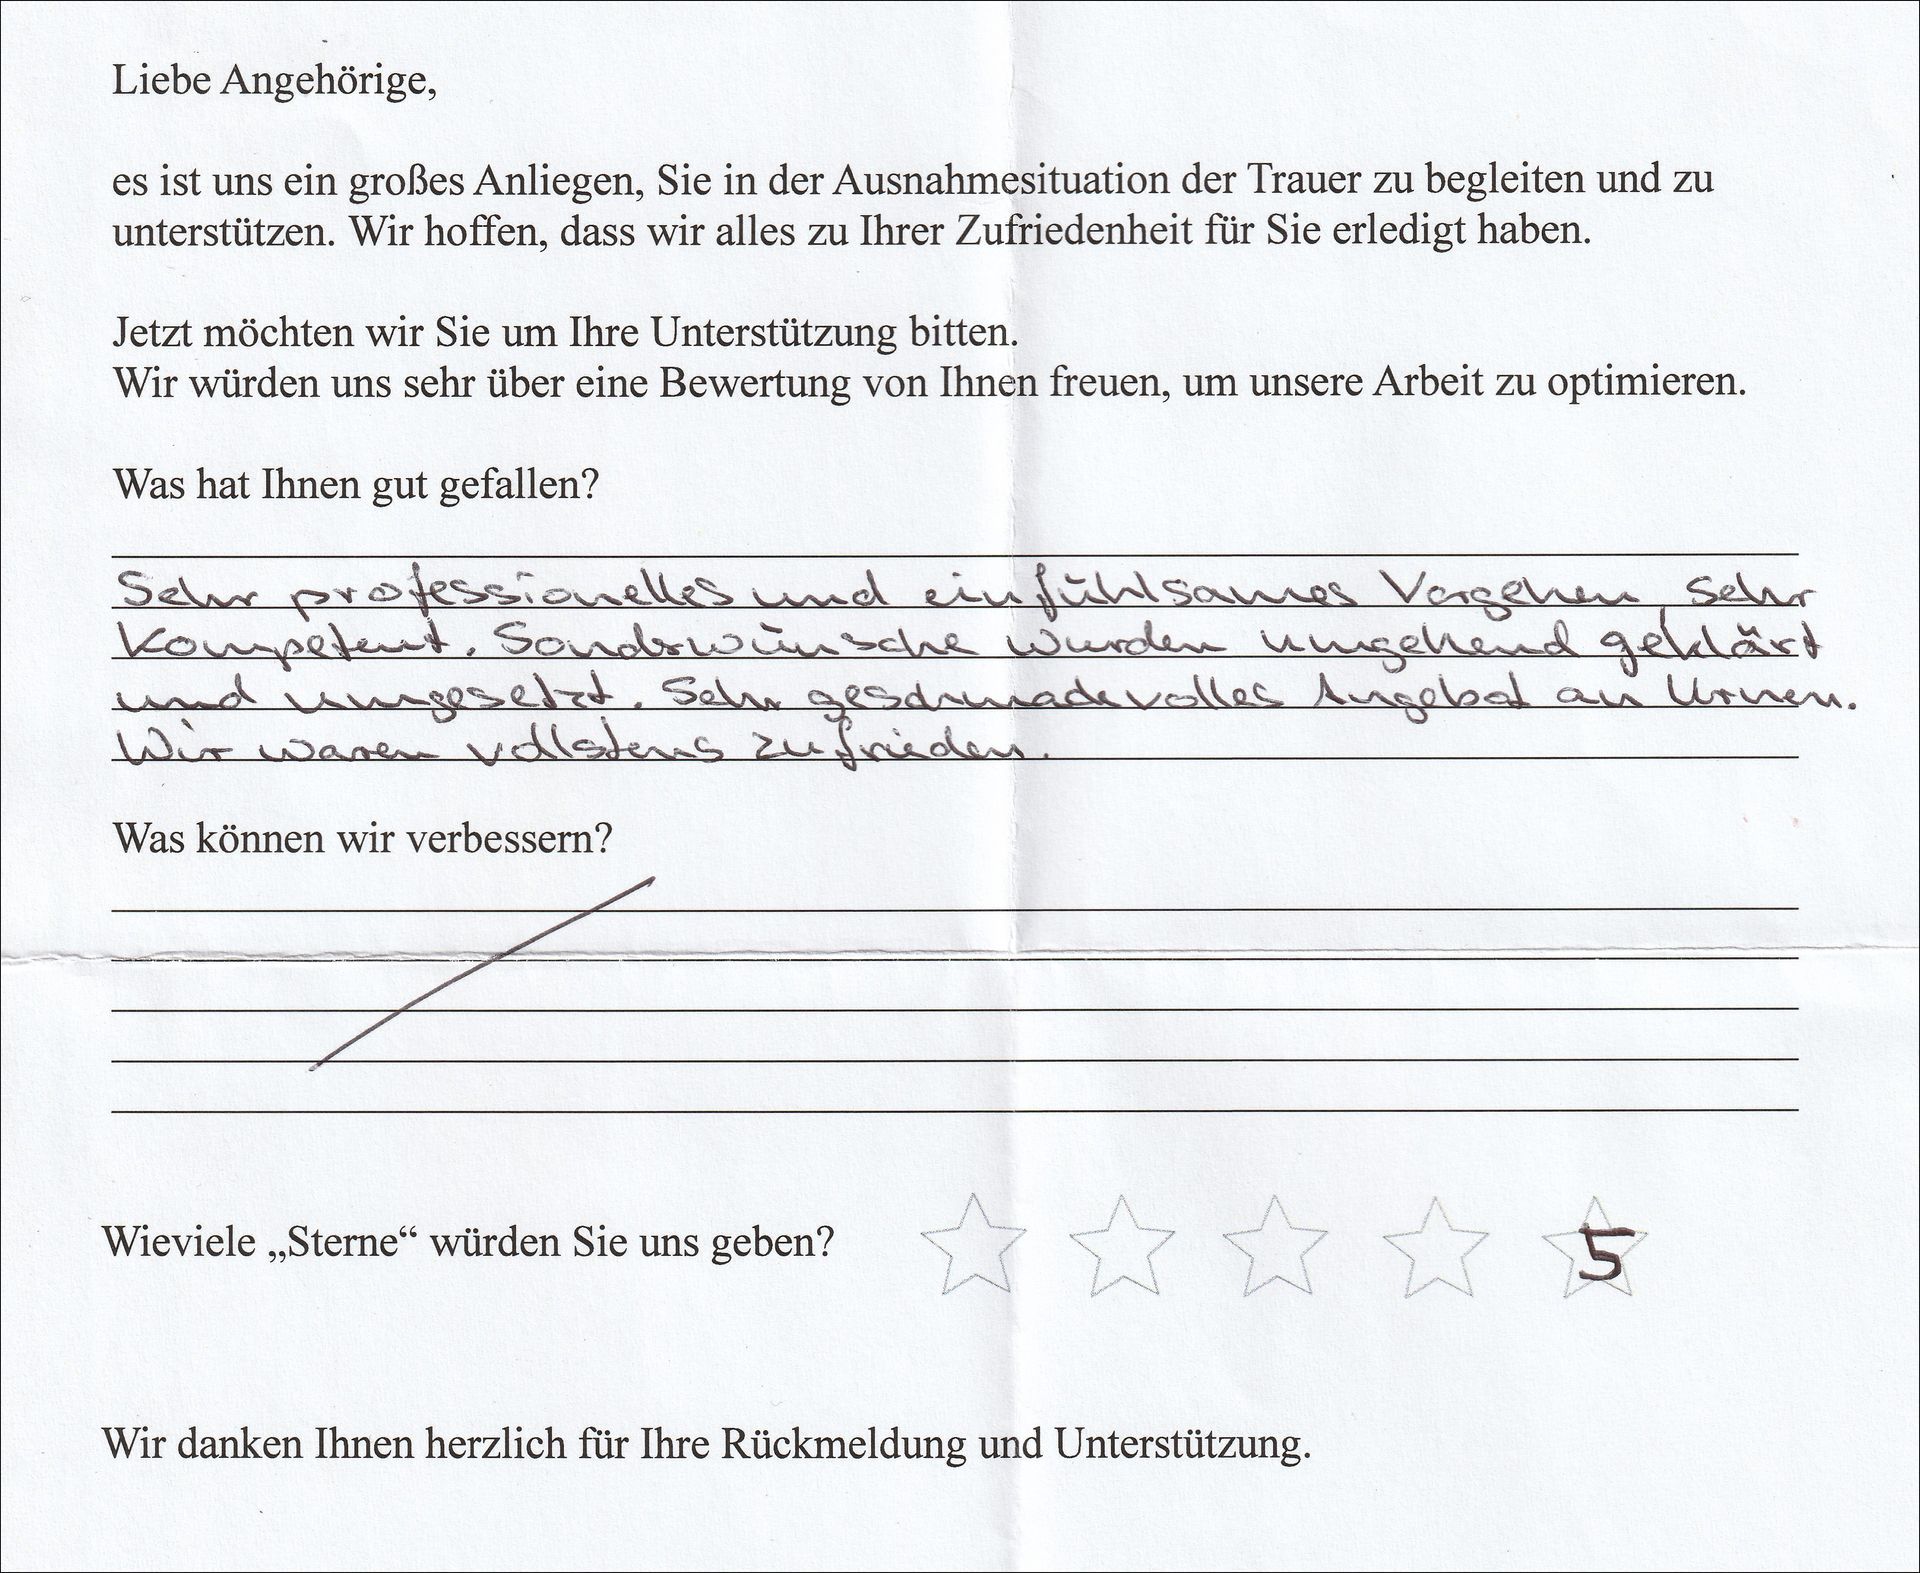 Liebe Angehörige,
es ist uns ein großes Anliegen, Sie in der Ausnahmesituation der Trauer zu begleiten und zu
unterstützen. Wir hoffen, dass wir alles zu Ihrer Zufriedenheit für Sie erledigt haben.
Jetzt möchten wir Sie um Ihre Unterstützung bitten.
Wir würden uns sehr über eine Bewertung von Ihnen freuen, um unsere Arbeit zu optimieren.
Was hat Ihnen gut gefallen?
Sehr professionelles und einfühlsames Vorgehen, sehr
kompetent. Sonderwünsche wurden umgehend geklärt
und umgesetzt. Sehr geschmackvolles Angebot an Urnen.
Wir waren vollstens zufrieden.
Was können wir verbessern?
Wieviele „Sterne“ würden Sie uns geben?
5
Wir danken Ihnen herzlich für Ihre Rückmeldung und Unterstützung.